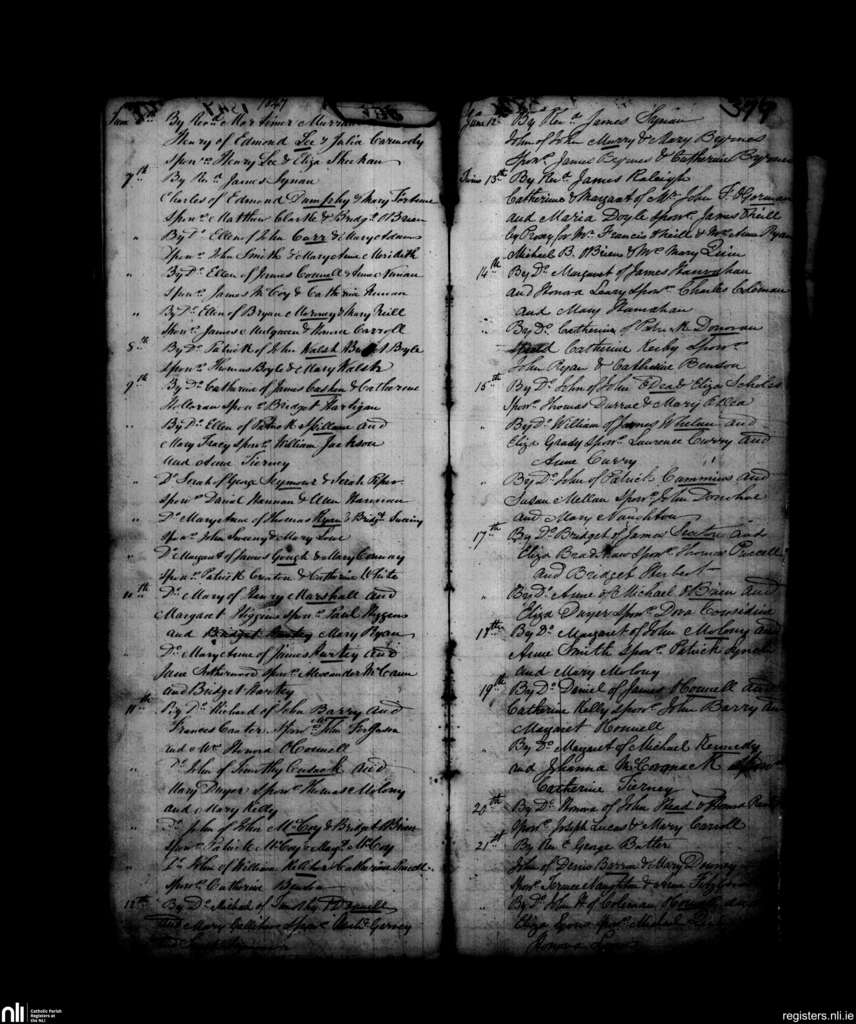 1847
By Revd. Mortimer
Henry of Edmond Lee & Julia Carmody
Sponrs. Henry Lee & Eliza Sheehan
7th By Revd. James Synan
Charles of Edmond Dampshy & Mary Fortune
Sponr. Matthew Clarke & Bridgt. OBrien
" By Do. Ellen of John Carr & Mary Adams
Sponr. John Smith & Mary Anne Meridith
" By Do. Ellen of James Connell & Anne
Sponr. James McCoy & Catherine
" By Do. Ellen of Bryan & Mary Neill
Sponr. James Mulqueen & Honora Carroll
8th By Do. Patrick of John Walsh & Boyle
Sponr. Thomas Boyle & Mary Walsh
9th By Do. Catherine of James & Catharine
Holloran Sponr. Bridget Hartigan
" By Do. Ellen of Patrick Spillane and
Mary Tracy Sponr. William Jackson
and Anne Tierney
" Do. Sarah of George Seymour & Sarah
Sponr. David Hannan & Ellen Hannan
" Do. Mary Anne of Thomas Ryan & Bridgt. Sweeny
Sponr. John Sweeny & Mary Lowe
" Do. Margaret of James Gough & Mary Conway
Sponr. Patrick & Catherine White
10th Do. Mary of Henry Marshall and
Margaret Higgins Sponr. Paul Higgens
and Bridget Hartey Mary Ryan
" Do. Mary Anne of James Hartey and
Jane Sotherwood Sponr. Alexander McCann
and Bridget Hartey
11th By Do. Richard of John Barry and
Frances Canter. Sponr. John Ferguson
and Mrs. Honora OConnell
" Do. John of Timothy Cusack and
Mary Dwyer Sponr. Thomas Molony
and Mary Kelly
" Do. John of John McCoy & Bridget OBrien
Sponr. Patrick McCoy & Margt. McCoy
" Do. John of William Kelleher & Catherine Purcell
Sponr. Catherine
12th By Do. Michael of Timothy
and Mary Sponr.
379
June 12 By Revd. James Synan
John of John Murry & Mary Beyrnes
Sponr. James Beyrnes & Catherine Beyrnes
June 13th By Revd. James Raleigh
Catherine & Margaret of Mr. John F. OGorman
and Maria Doyle Sponr. James ONeill
by Proxy for Mr. Francis ONeill & Mrs. Anne Ryan
Michael B. OBrien & Mrs. Mary Quin
14th By Do. Margaret of James Hanrahan
and Honora Leary Sponr. Charles Coleman
and Mary Hanrahan
" By Do. Catherine of Patrick Donovan
Catherine Kerby Sponr.
John Ryan & Catherine Benson
15th By Do. John of John ODea & Eliza Scholes
Sponr. Thomas & Mary ODea
" By Do. William of James Whelan and
Eliza Grady Sponr. Laurence Curry and
Anne Curry
" By Do. John of Patrick Cummins and
Susan Mellan Sponr. John Donohoe
and Mary Naughton
17th By Do. Bridget of James Sexton and
Eliza Bradshaw Sponr. Thomas Purcell
and Bridget Herbert
" By Do. Anne of Michael OBrien and
Eliza Dwyer Sponr. Dora Considine
18th By Do. Margaret of John Molony and
Anne Smith Sponr. Patrick Lynch
and Mary Molony
19th By Do. Daniel of James OConnell and
Catherine Kelly Sponr. John Barry and
Margaret OConnell
" By Do. Margaret of Michael Kennedy
and Johanna McCormack Sponr.
Catherine Tierney
20th By Do. Honora of John Head & Honora
Sponr. Joseph Lucas & Mary Carroll
21st By Revd. George Butler
John of Denis Barron & Mary Downey
Sponr. Terence Naughton & Anne
" By Do. John H of Coleman and
Eliza Lyons Sponr. Michael
Honora
nli
Catholic Parish
Registers at
the NLI
registers.nli.ie